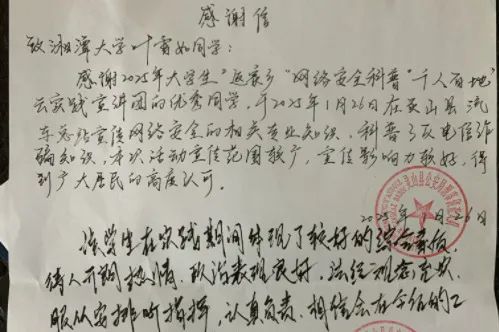 感谢信
致湘潭大学叶雷如同学：
感谢2025年大学生"返家乡"网络安全科普"千人百地"
云实践宣讲团的优秀同学，于2025年1月26日在灵山县汽
车总站宣传网络安全的相关专业知识，科普了反电信诈
骗知识，本次活动宣传范围较广，宣传影响力较好，得
到广大居民的高度认可。
2025年1月26日
该学生在实践期间体现了较好的综合素质，
待人开朗热情，政治表现良好，法纪观念
服从安排听指挥，认真负责，相信会在今后的工